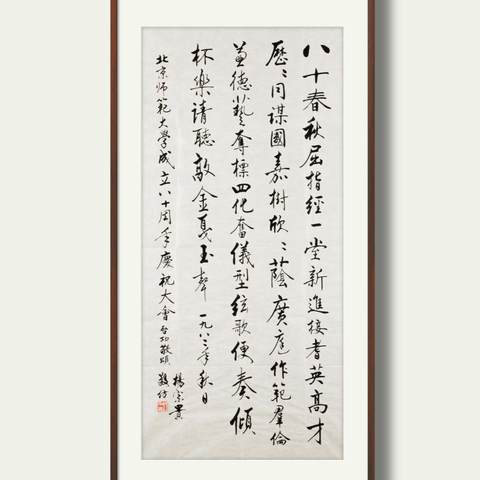 八十春秋屈指經一堂新進接耆英高才
歷〻同謀國嘉樹欣〻蔭廣庭作範羣倫
兼德藝奪標四化奮儀型絃歌便奏傾
杯樂請聽敲金戛玉聲 一九八二年秋日
北京师範大學成立八十周年慶祝大會 启功敬頌
楊宗貴